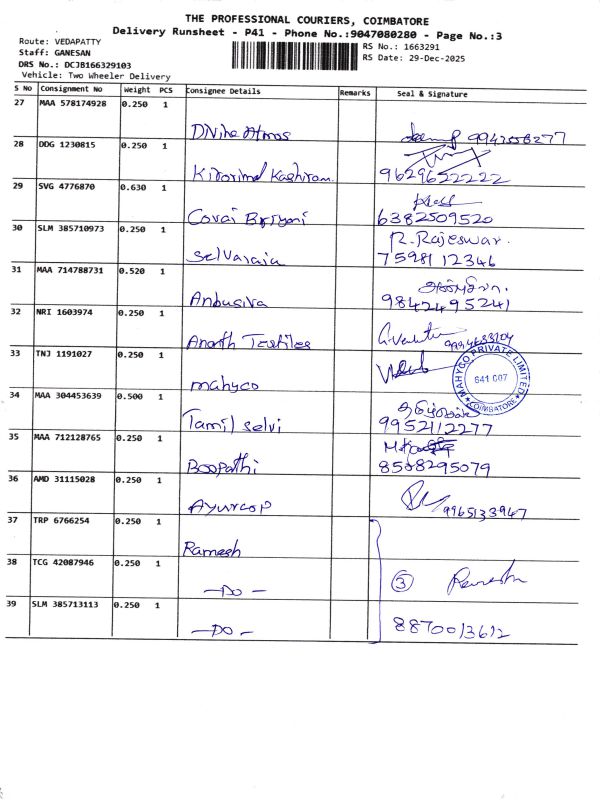 THE PROFESSIONAL COURIERS, COIMBATORE
Delivery Runsheet - P41 - Phone No.:9047080280 - Page No.:3
Route: VEDAPATTY
Staff: GANESAN
DRS No.: DCJB166329103
Vehicle: Two Wheeler Delivery
RS No.: 1663291
RS Date: 29-Dec-2025
S No Consignment No Weight PCS Consignee Details Remarks Seal & Signature
27 MAA 578174928 0.250 1
28 DDG 1230815 0.250 1
9629622222
29 SVG 4776870 0.630 1
Covai Briyani 6382509520
30 SLM 385710973 0.250 1 R. Rajeswar.
Selvaraja 7598112346
31 MAA 714788731 0.520 1
Anbusiva 9842495241
32 NRI 1603974 0.250 1
Textiles 9994633104
33 TNJ 1191027 0.250 1
mahyco
MAHYCO PRIVATE LIMITED
641 007
COIMBATORE
34 MAA 304453639 0.500 1
Tamil selvi 9952112277
35 MAA 712128765 0.250 1
Boopathi 8508295079
36 AMD 31115028 0.250 1
9965133947
37 TRP 6766254 0.250 1
Ramesh
38 TCG 42087946 0.250 1
-Do- 3 Ramesh
39 SLM 385713113 0.250 1
-Do- 8870013612